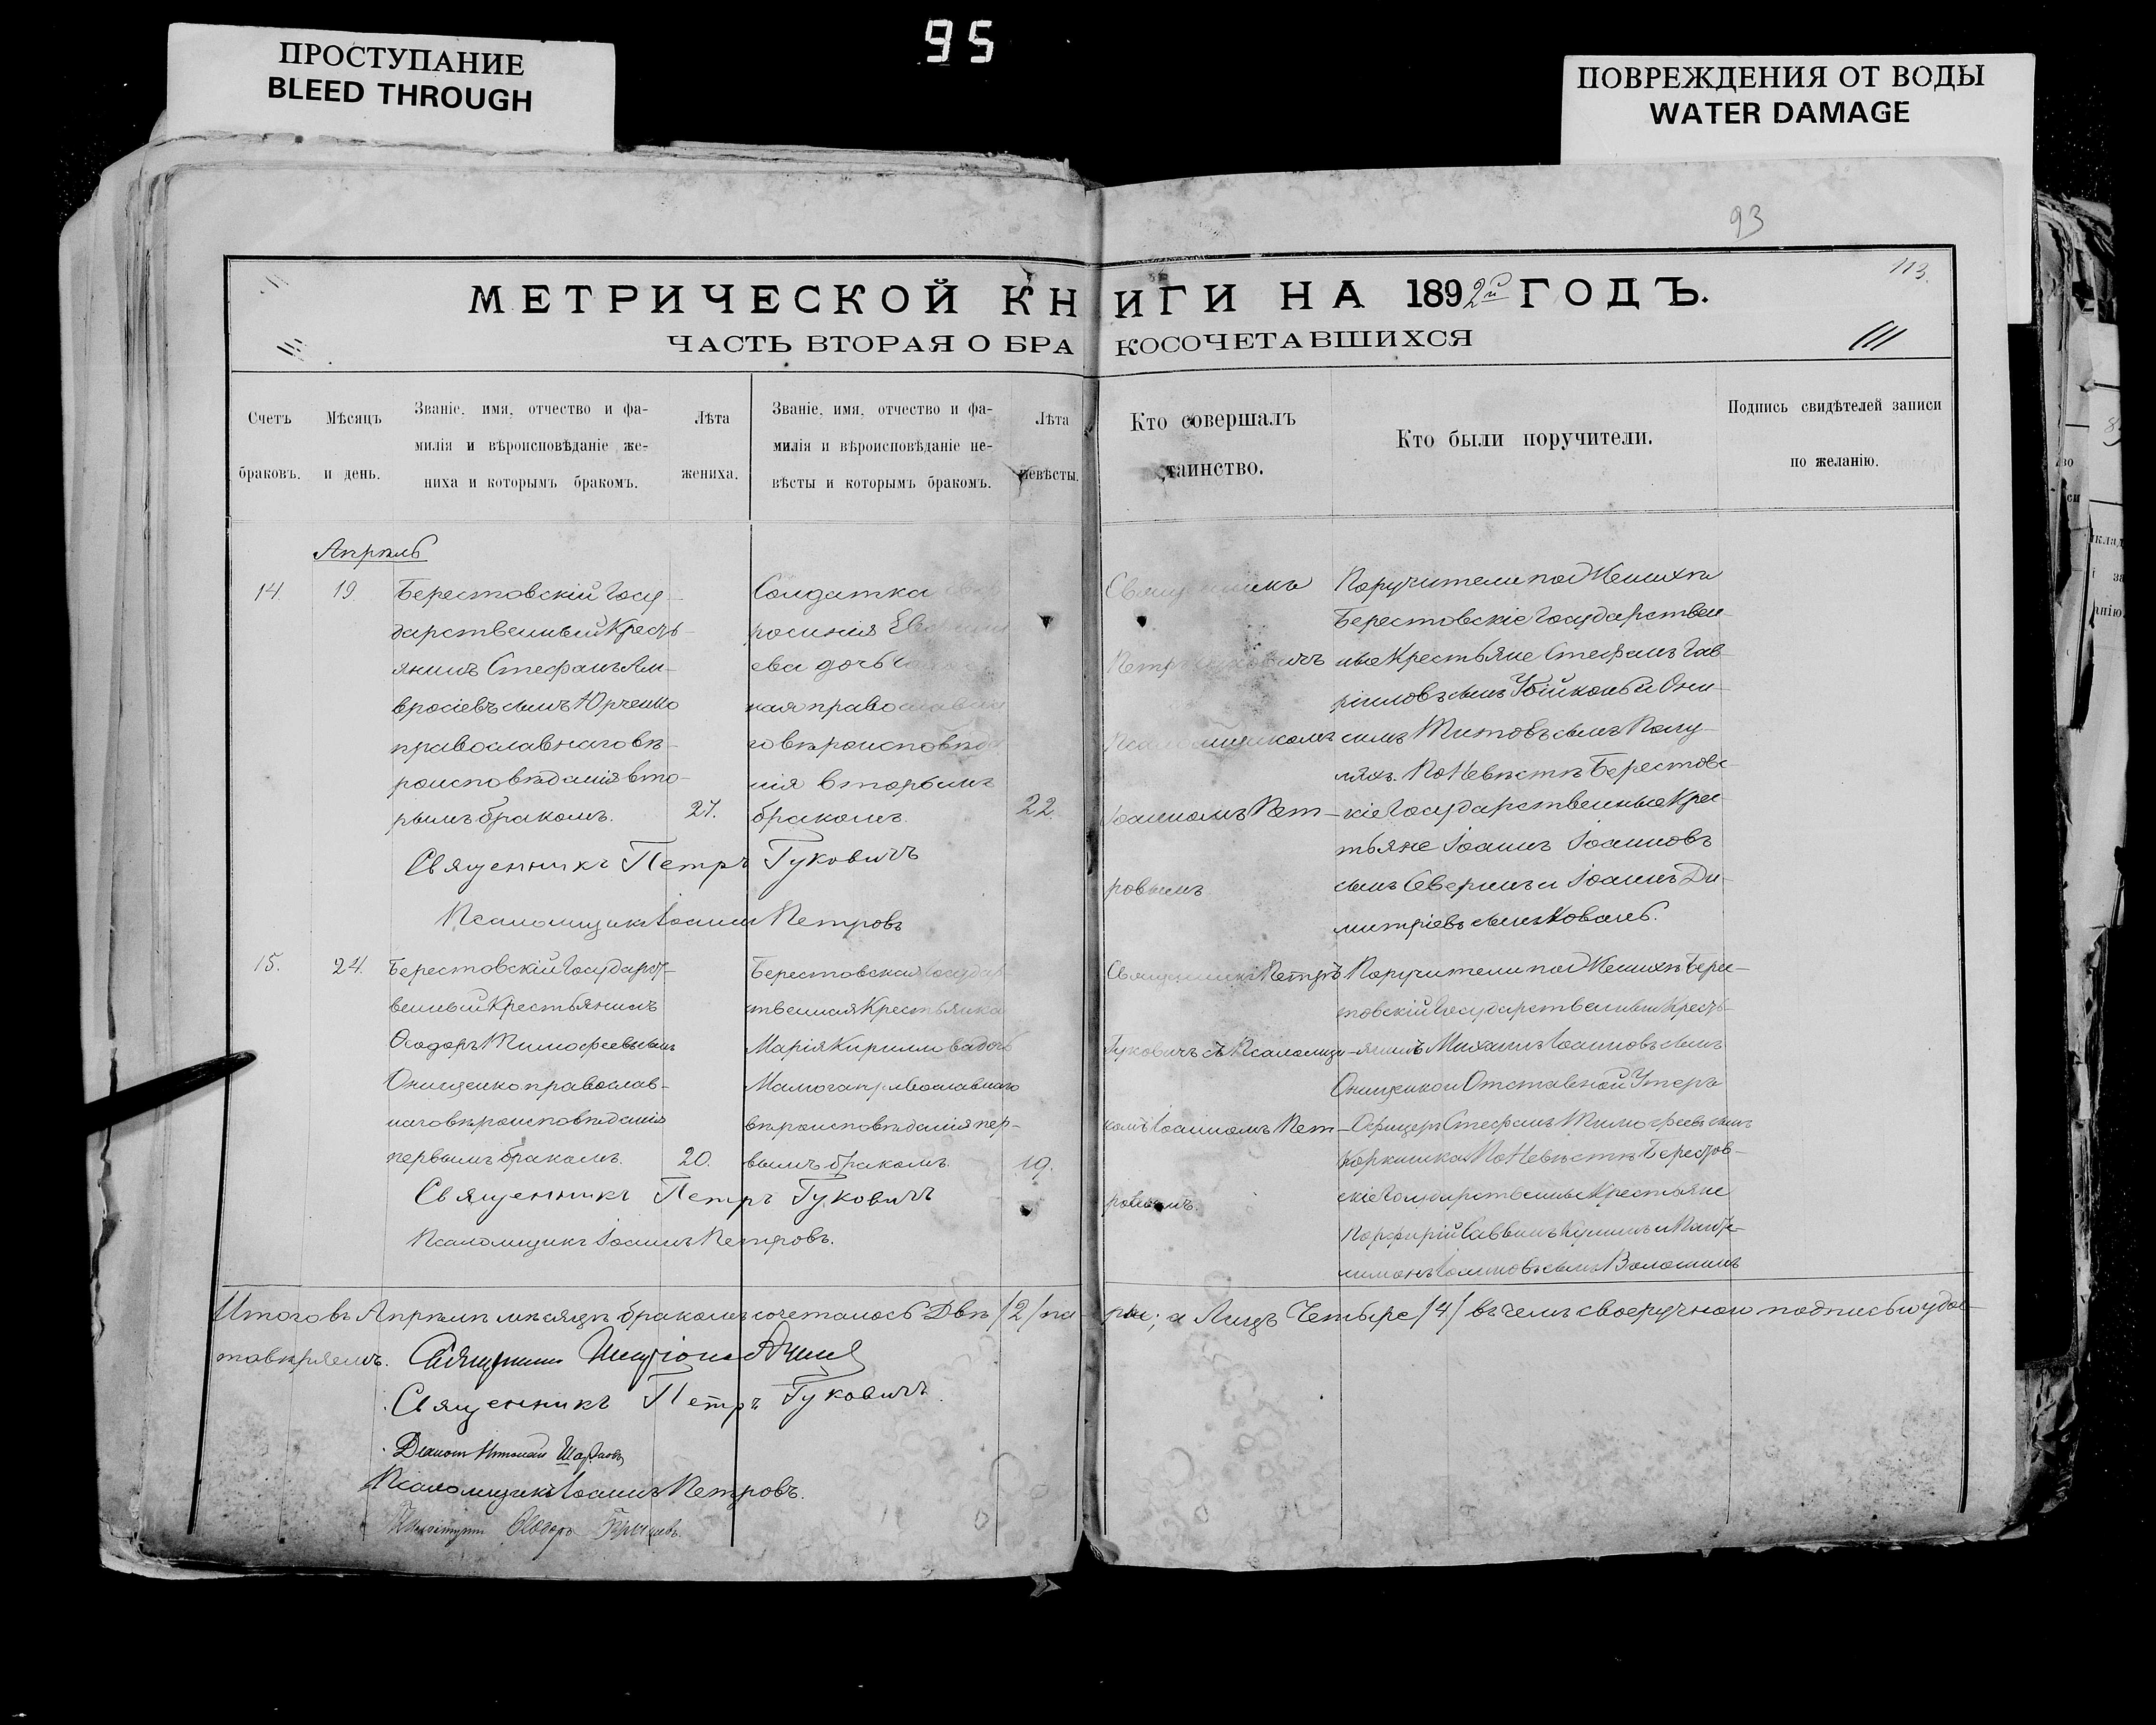 95
ПРОСТУПАНИЕ
BLEED THROUGH
ПОВРЕЖДЕНИЯ ОТ ВОДЫ
WATER DAMAGE
93
113.
МЕТРИЧЕСКОЙ КНИГИ НА 1892й ГОДЪ.
ЧАСТЬ ВТОРАЯ О БРАКОСОЧЕТАВШИХСЯ
Счетъ
браковъ.
Мѣсяцъ
и день.
Званіе, имя, отчество и фа-
милія и вѣроисповѣданіе же-
ниха и которымъ бракомъ.
Лѣта
жениха.
Званіе, имя, отчество и фа-
милія и вѣроисповѣданіе не-
вѣсты и которымъ бракомъ.
Лѣта
невѣсты.
Кто совершалъ
таинство.
Кто были поручители.
Подпись свидѣтелей записи
по желанію.
Апрѣль
14.
19
Берестовскій Госу-
дарственный Кресть-
янинъ Стефанъ Ам-
вросіевъ сынъ Юрченко
православнаго вѣ-
роисповѣданія вто-
рымъ бракомъ.
27.
Солдатка
росинія
ева дочь
ная православна
го вѣроисповѣда
нія вторымъ
бракомъ.
22.
Священникъ
Петръ Гуковичъ
Псаломщикомъ
Іоанномъ Пет-
ровымъ
Поручители по Женихѣ
Берестовскіе Государствен-
ные Крестьяне Стефанъ Гав-
ріиловъ сынъ и Они-
симъ Титовъ сынъ
По Невѣстѣ Берестовс-
кіе Государственные Крес-
тьяне Іоаннъ Іоанновъ
сынъ Северинъ и Іоаннъ Ди-
митріевъ сынъ Коваль.
Священникъ Петръ Гуковичъ
Псаломщикъ Іоаннъ Петровъ
15.
24.
Берестовскій Государст-
венный Крестьянинъ
Ѳеодоръ Тимофеевъ сынъ
Онищенко православ-
наго вѣроисповѣданія
первымъ бракомъ.
20.
Берестовская Государ
ственная Крестьянка
Марія Кириллова дочь
православнаго
вѣроисповѣданія пер-
вымъ бракомъ.
19.
Священникъ Петръ
Гуковичъ съ Псаломщи-
комъ Іоанномъ Пет-
ровымъ.
Поручители по Женихѣ Берес-
товскій Государственный Кресть-
янинъ Михаилъ Іоанновъ сынъ
Онищенко и Отставной Унтеръ
Офицеръ Стефанъ Тимофеевъ сынъ
По Невѣстѣ Берестов-
скіе Государственные Крестьяне
Порфирій Саввинъ и Панте-
лимонъ Іоанновъ сынъ Волошинъ
Священникъ Петръ Гуковичъ
Псаломщикъ Іоаннъ Петровъ.
Итого въ Апрѣлѣ мѣсяцѣ бракомъ сочеталось Двѣ /2/ па-ры; а Лицъ Четыре /4/ въ чемъ своеручною подписью удос-
товѣряемъ. Священникъ
Священникъ Петръ Гуковичъ.
Діаконъ
Псаломщикъ Іоаннъ Петровъ.
Ѳеодоръ